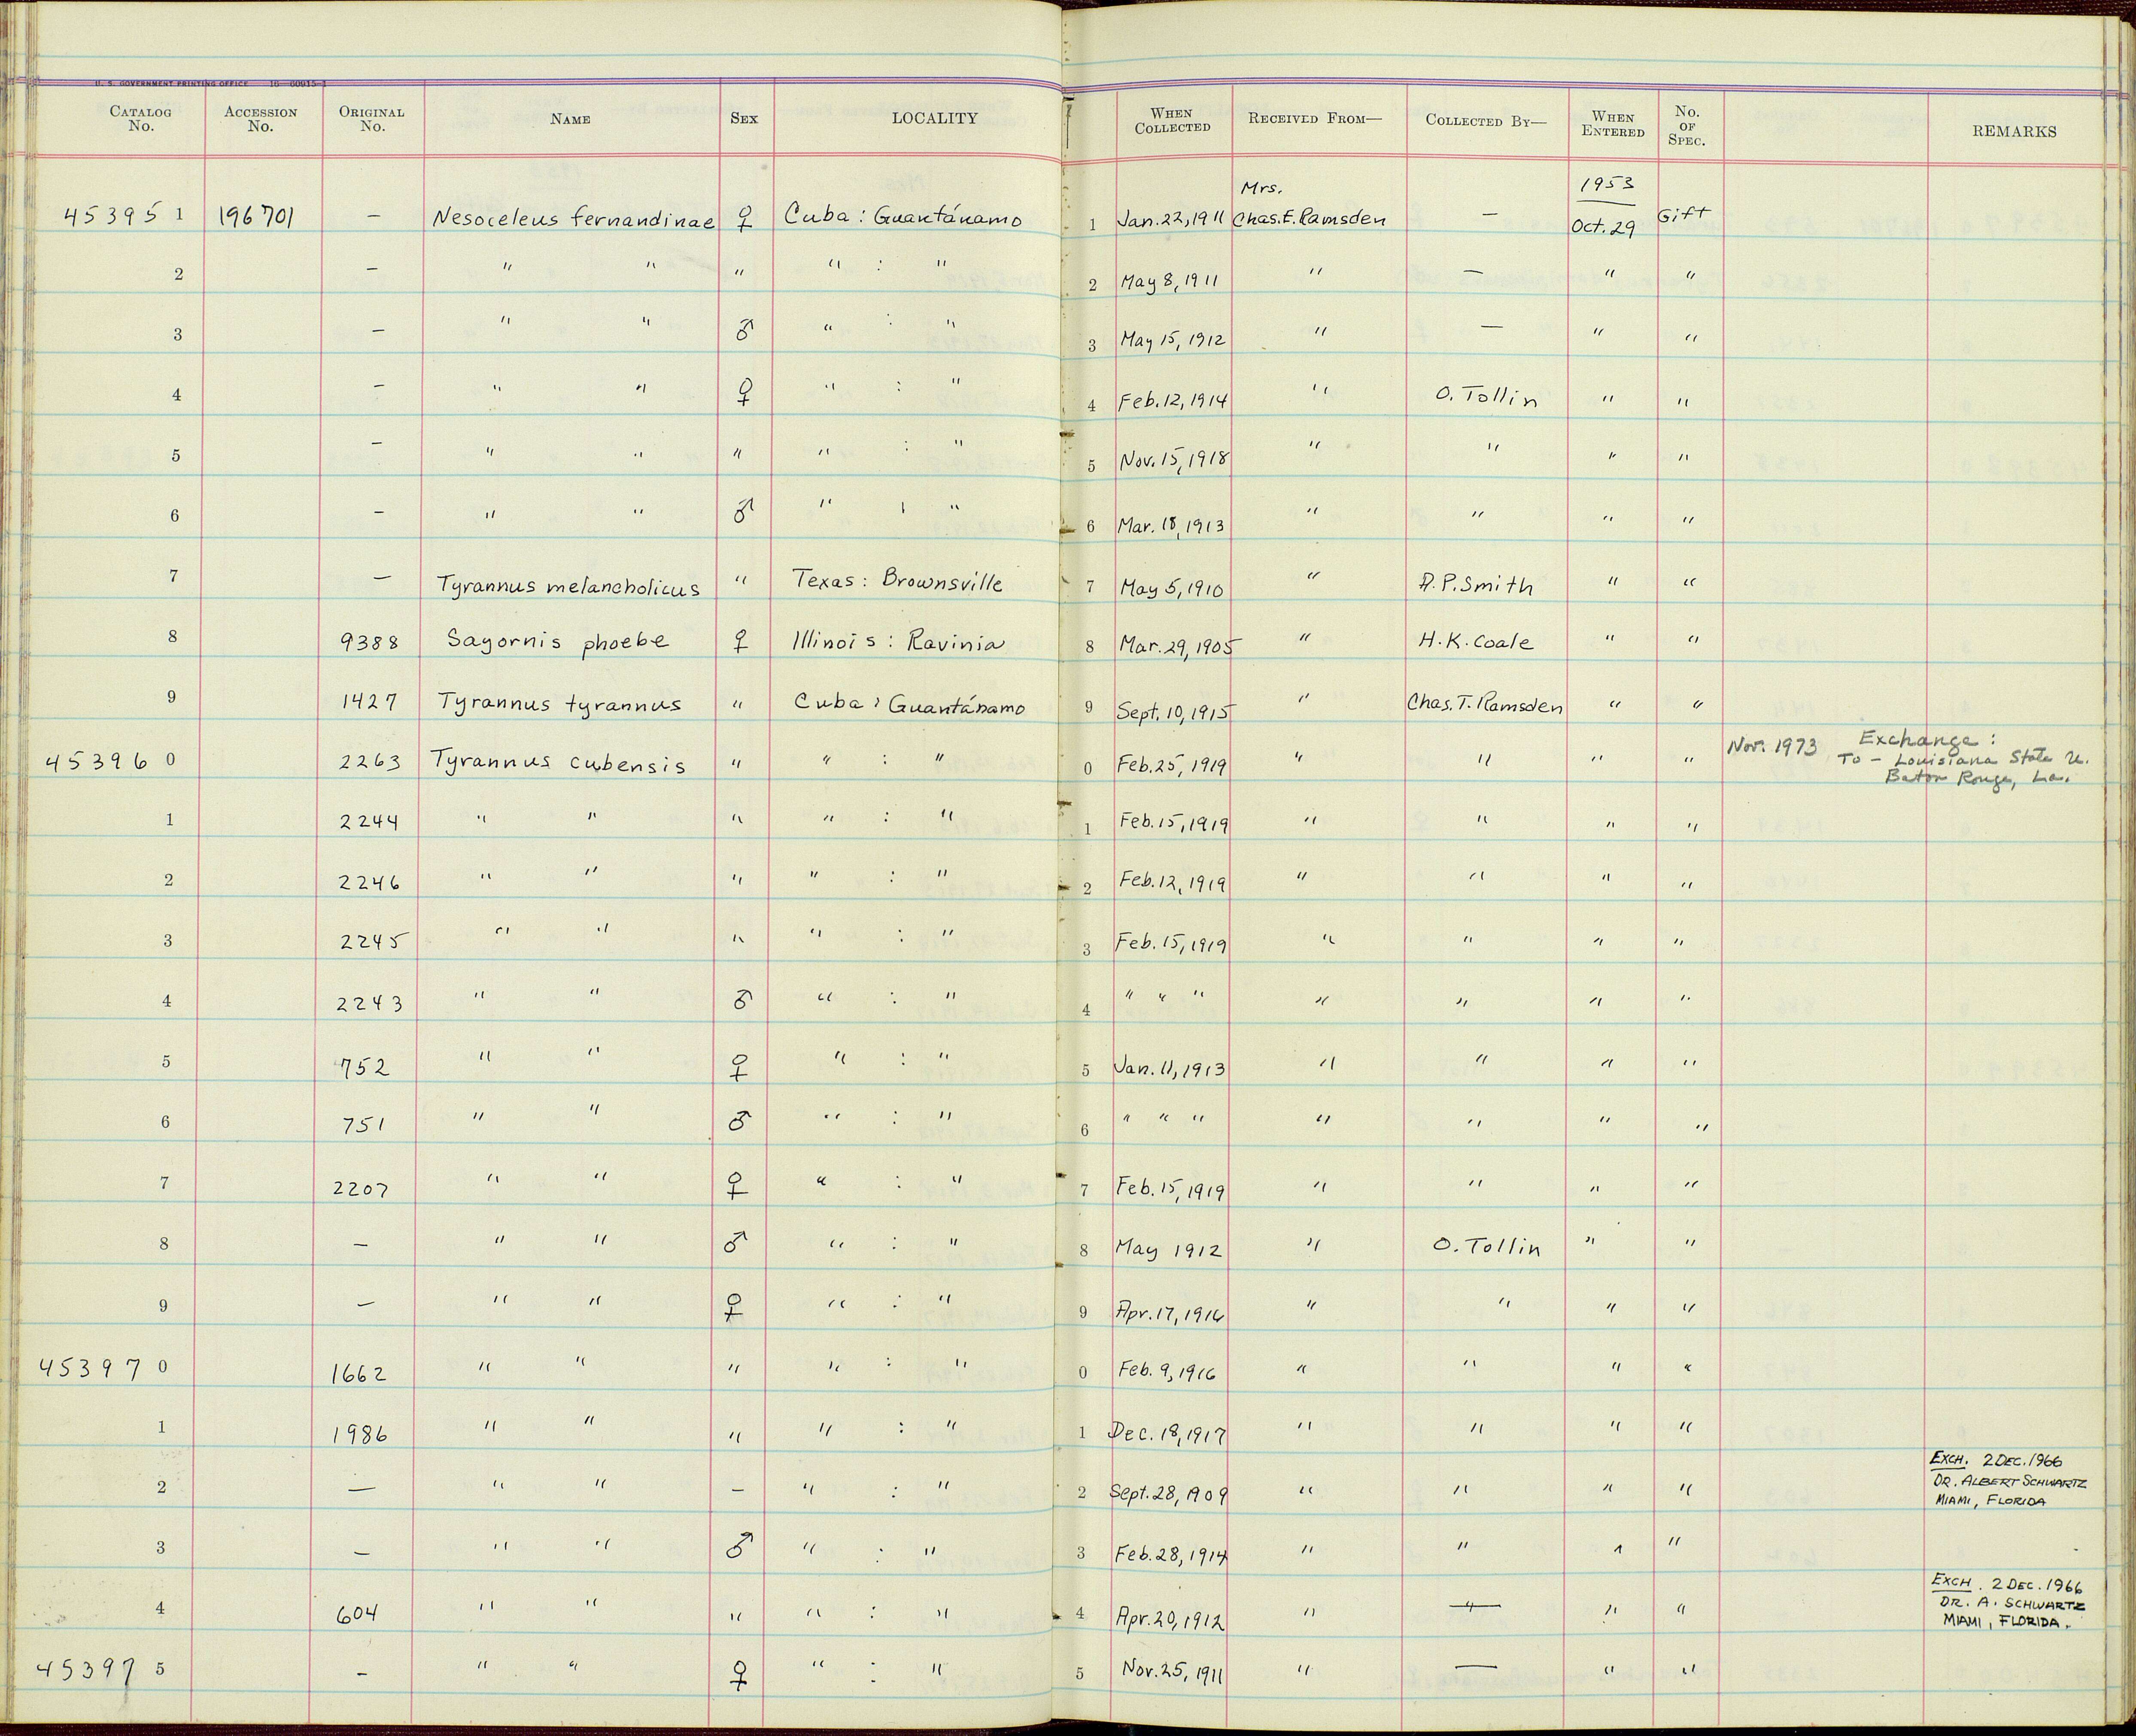 U. S. GOVERNMENT PRINTING OFFICE 16—60915-1
CATALOG No. ACCESSION No. ORIGINAL No. NAME SEX LOCALITY WHEN COLLECTED RECEIVED FROM— COLLECTED BY— WHEN ENTERED No. OF SPEC. REMARKS
Mrs. 1953
45395 1 196701 — Nesoceleus fernandinae ♀ Cuba : Guantánamo 1 Jan. 22, 1911 Chas. E. Ramsden — Oct. 29 Gift
2 — " " " " : " 2 May 8, 1911 " — " "
3 — " " ♂ " : " 3 May 15, 1912 " — " "
4 — " " ♀ " : " 4 Feb. 12, 1914 " O. Tollin " "
5 — " " " " : " 5 Nov. 15, 1918 " " " "
6 — " " ♂ " : " 6 Mar. 18, 1913 " " " "
7 — Tyrannus melancholicus " Texas : Brownsville 7 May 5, 1910 " A. P. Smith " "
8 9388 Sayornis phoebe ♀ Illinois : Ravinia 8 Mar. 29, 1905 " H. K. Coale " "
9 1427 Tyrannus tyrannus " Cuba : Guantánamo 9 Sept. 10, 1915 " Chas. T. Ramsden " "
45396 0 2263 Tyrannus cubensis " " : " 0 Feb. 25, 1919 " " " " Nov. 1973 Exchange :
To – Louisiana State U.
Baton Rouge, La.
1 2244 " " " " : " 1 Feb. 15, 1919 " " " "
2 2246 " " " " : " 2 Feb. 12, 1919 " " " "
3 2245 " " " " : " 3 Feb. 15, 1919 " " " "
4 2243 " " ♂ " : " 4 " " " " " " "
5 752 " " ♀ " : " 5 Jan. 11, 1913 " " " "
6 751 " " ♂ " : " 6 " " " " " " "
7 2207 " " ♀ " : " 7 Feb. 15, 1919 " " " "
8 — " " ♂ " : " 8 May 1912 " O. Tollin " "
9 — " " ♀ " : " 9 Apr. 17, 1916 " " " "
45397 0 1662 " " " " : " 0 Feb. 9, 1916 " " " "
1 1986 " " " " : " 1 Dec. 18, 1917 " " " "
2 — " " — " : " 2 Sept. 28, 1909 " " " " EXCH. 2 DEC. 1966
DR. ALBERT SCHWARTZ
MIAMI, FLORIDA
3 — " " ♂ " : " 3 Feb. 28, 1914 " " " "
4 604 " " " " : " 4 Apr. 20, 1912 " — " " EXCH. 2 DEC. 1966
DR. A. SCHWARTZ
MIAMI, FLORIDA.
45397 5 — " " ♀ " : " 5 Nov. 25, 1911 " — " "